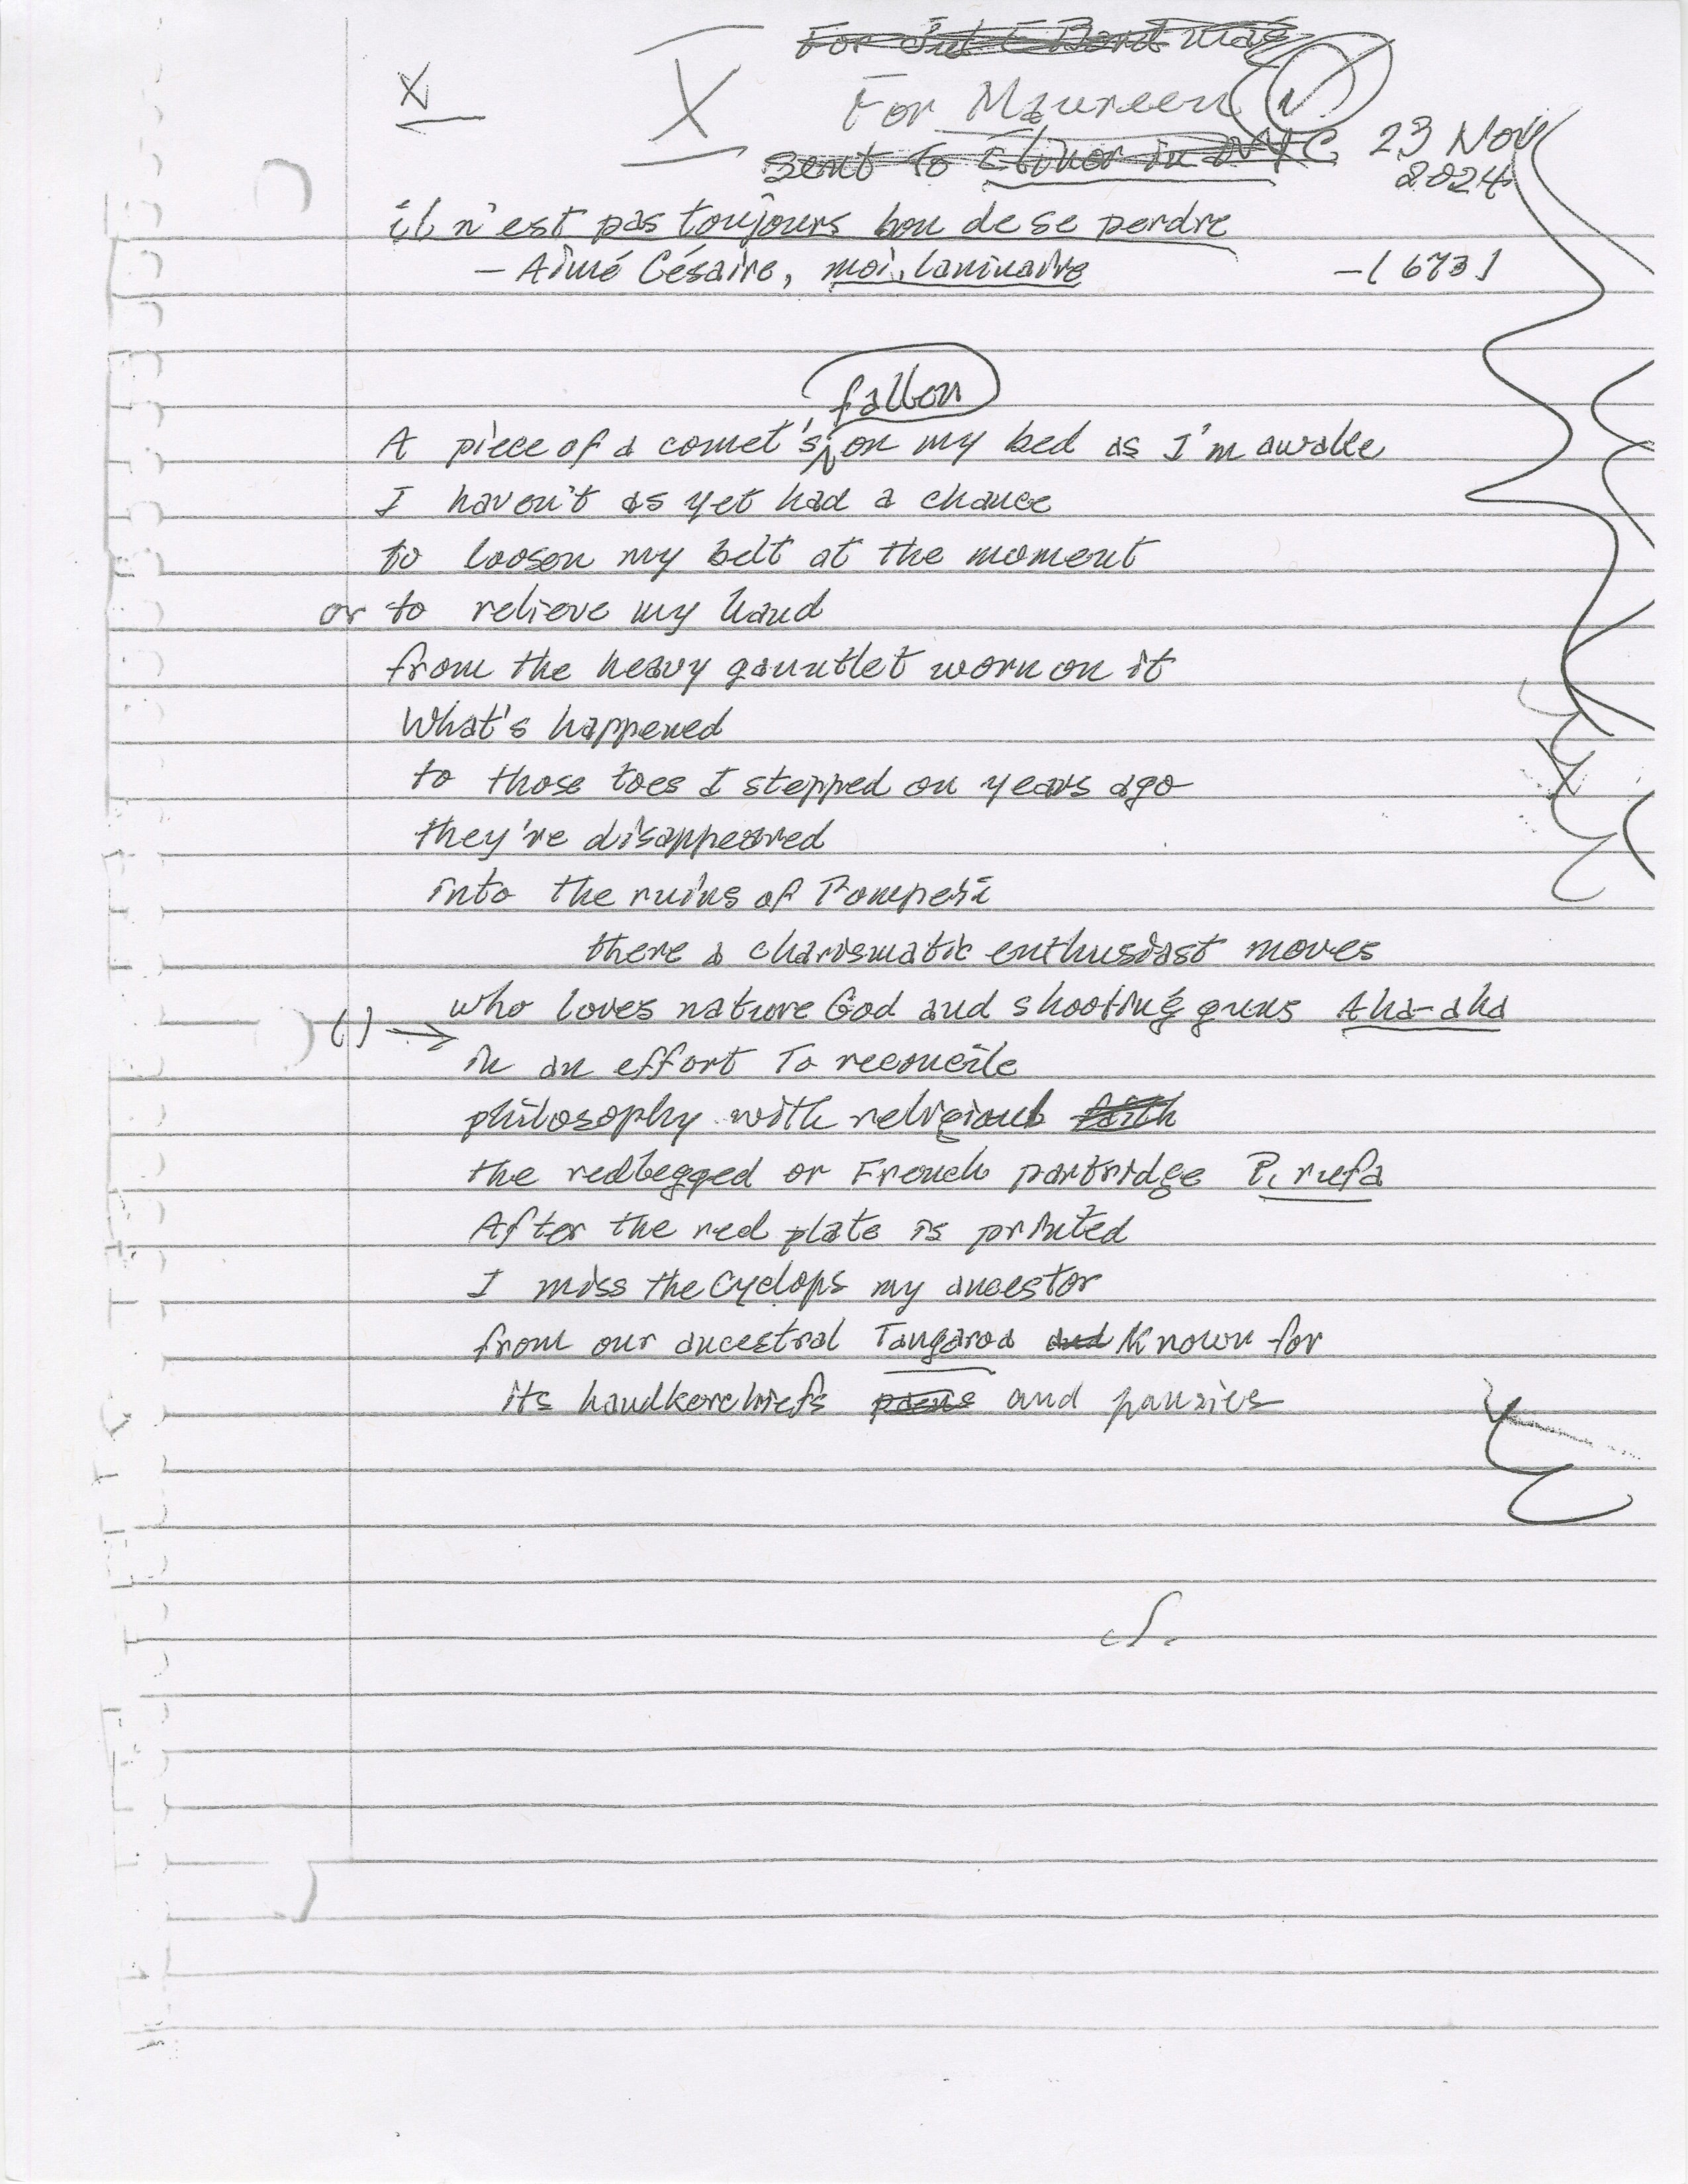 X
X
For Maureen
sent to Elinor in NYC
23 Nov
2024
il n'est pas toujours bon de se perdre
– Aimé Césaire, moi, laminaire –[673]
fallen
A piece of a comet's on my bed as I'm awake
I haven't as yet had a chance
to loosen my belt at the moment
or to relieve my hand
from the heavy gauntlet worn on it
What's happened
to those toes I stepped on years ago
they've disappeared
into the ruins of Pompeii
there a charismatic enthusiast moves
( ) → who loves nature God and shooting guns Aha-aha
in an effort to reconcile
philosophy with religious faith
the redlegged or French partridge P. rufa
After the red plate is printed
I miss the Cyclops my ancestor
from our ancestral Tangaroa and known for
its handkerchiefs and pansies
S.